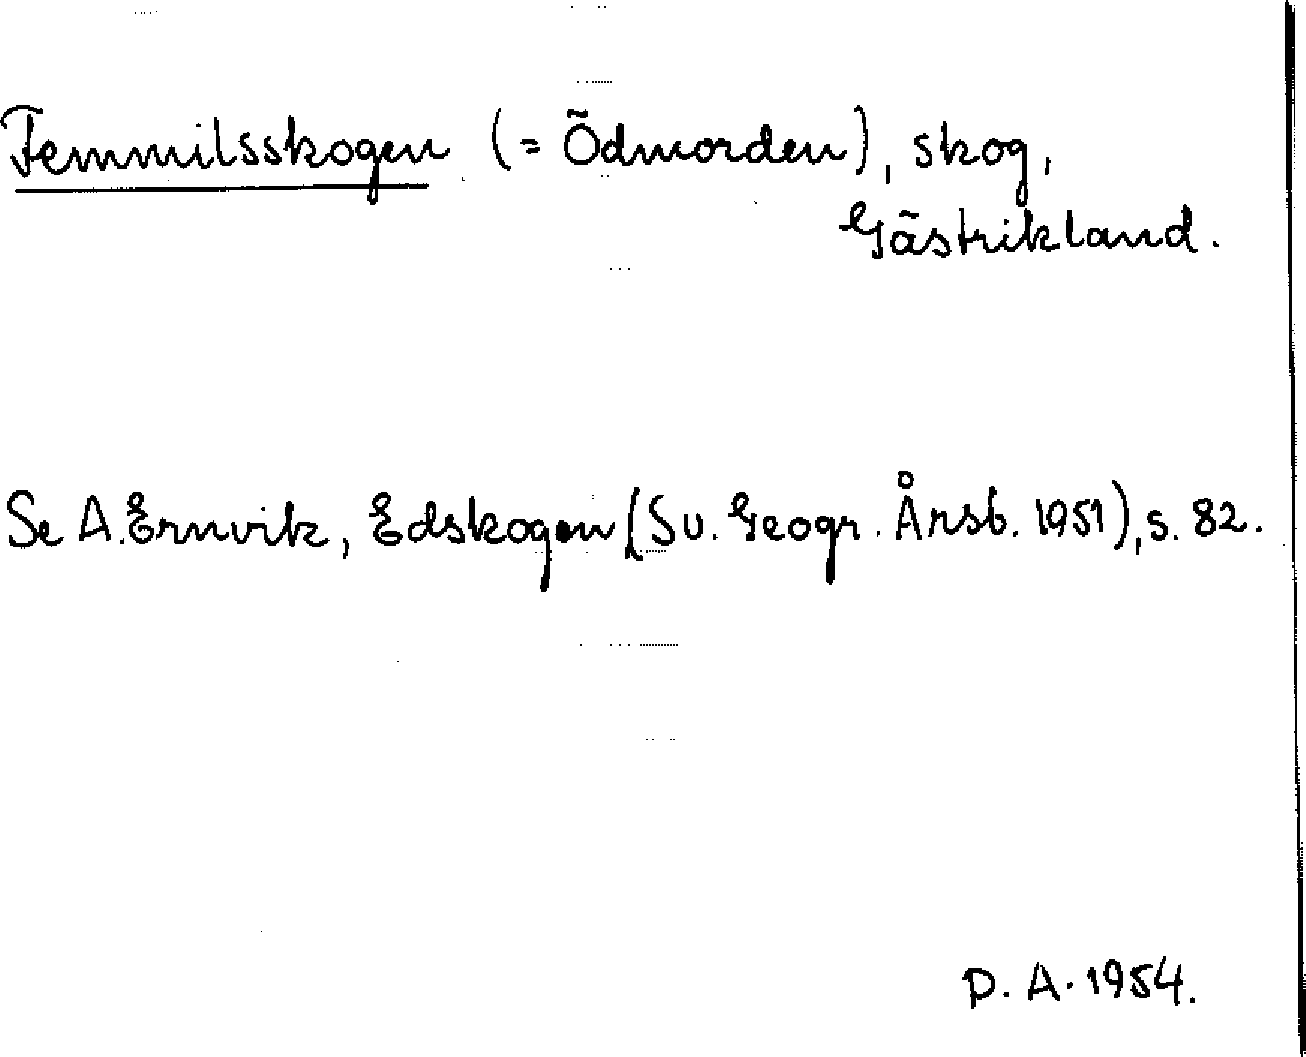 Femmilsskogen (= Ödmorden), skog,
Gästrikland.
Se A. Ernvik, Edskogen (Sv. Geogr. Årsb. 1951), s. 82.
D. A. 1954.